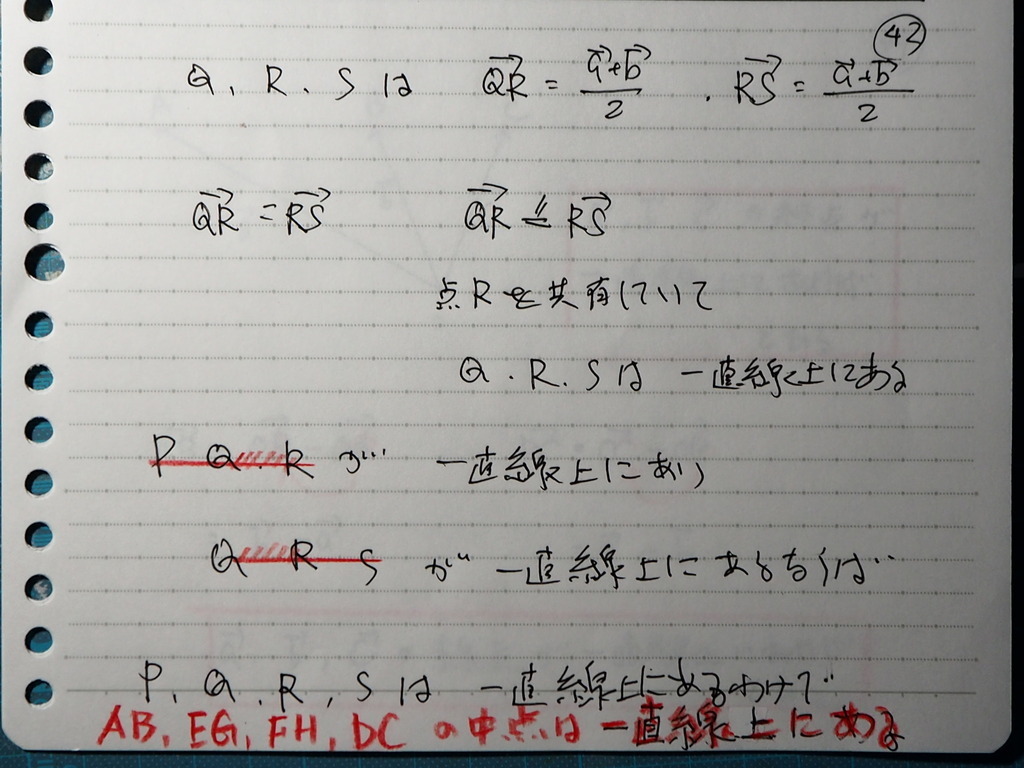 42
Q, R, S は $\overrightarrow{QR} = \frac{\vec{a}+\vec{b}}{2}$ , $\overrightarrow{RS} = \frac{\vec{a}+\vec{b}}{2}$
$\overrightarrow{QR} = \overrightarrow{RS}$ $\overrightarrow{QR}$ と $\overrightarrow{RS}$
点Rを共有していて
Q, R, S は 一直線上にある
P Q R が 一直線上にあり
Q R S が 一直線上にあるならば
P, Q, R, S は 一直線上にあるわけで
AB, EG, FH, DC の中点は一直線上にある